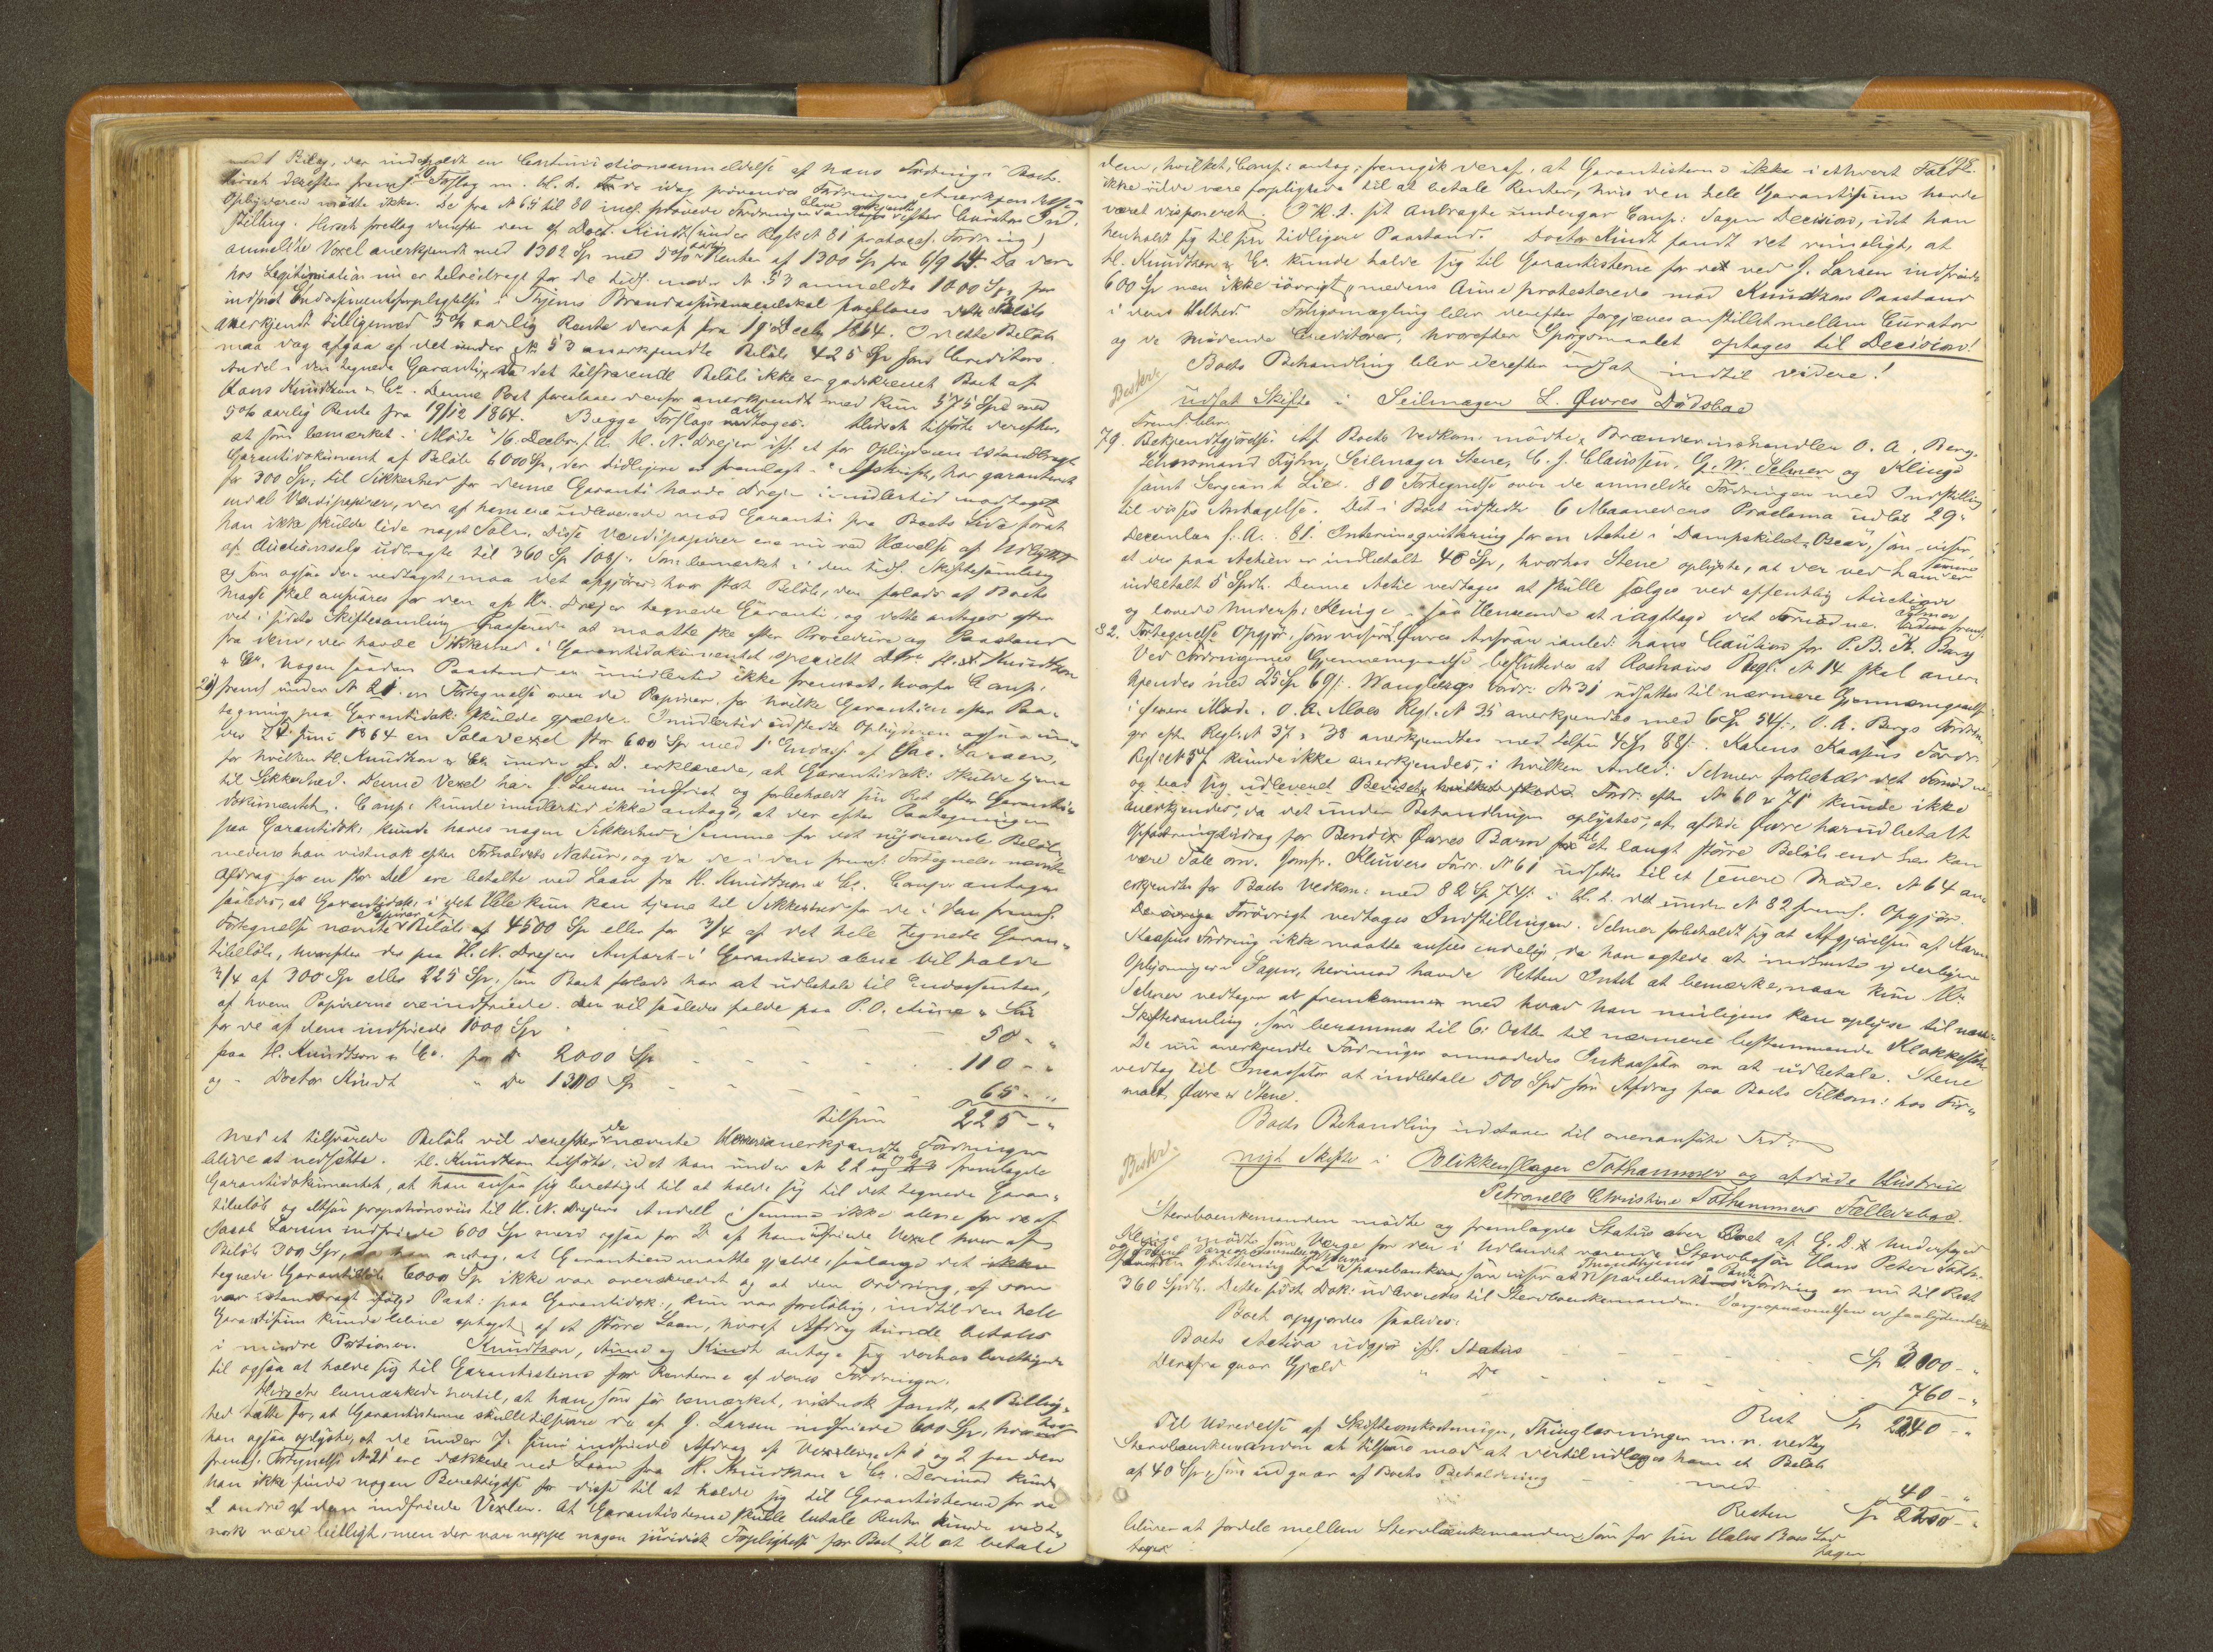 med Bilag, der indeholdt en Continuationsanmeldelse af hans Fordring i Boet.
Hirsch derefter frems. Forslag m. H. t. de idag prøvende Fordringers Anerkjendelse
Oplyseren mødte ikke. De fra N 65 til 80 incl. prøvede Fordringer bleve anerkjendte efter Curators Ind-
stilling. Hirsch foretog derefter den af Doct. Kindt (under Regl. N 81 protocol. Fordring)
anmeldte Vexel anerkjendt med 1302 Sp med 5 % aarl. Renter af 1300 Sp fra 6/9 14. Da den
hos Legitimation nu er tilveiebragt for de tidl. under N 53 anmeldte 1000 Sp for
indfriet Endossementsforpligtelse i Thjems Brandassuranceselskal foreslaaes dette Beløb
anerkjendt tilligemed 5 % aarlig Rente deraf fra 19 Decb 1864. I dette Beløb
maa dog afgaa af det under N 53 anerkjendte Beløb 425 Sp som Creditors
Andel i den tegnede Garanti, da det tilsvarende Beløb ikke er godskrevet Boet af
Hans Knudtzon & Co. Denne Post foreslaaes derfor anerkjendt med kun 575 Spd med
5 % aarlig Rente fra 19/12 1864. Begge Forslag antoges. Hirsch tilførte derefter,
at som bemærket i Møde 16. Decbr. f. A. H. N. Drejer ifl. et for Oplyseren istandbragt
Garantidokument af Beløb 6000 Sp, der tidligere er fremlagt i Afskrift, har garanteret
for 300 Sp; til Sikkerhed for denne Garanti havde Drejer imidlertid modtaget
endel Værdipapirer, der af ham ere udleverede mod Garanti fra Boets Side forat
han ikke skulde lide noget Tab. Disse Værdipapirer ere nu ved Hævelse af Udbytte
af Auctionssalg udbragte til 360 Sp 108 s. Som bemærket i den tidl. Skiftesamling
og som ogsaa der vedtaget, maa det afgjøres hvor stort Beløb, der forlods af Boets
Masse skal ansvares for den af Hr. Drejer tegnede Garanti, og dette antoges efter
det i sidste Skiftesamling at maatte ske efter Procedure og Paastand
fra dem, der havde Sikkerhed i Garantidokumentet specielt H. Knudtzon
& Co. Nogen saadan Paastand er imidlertid ikke fremsat, hvorfor Comp.
21) frems under N 21 en Fortegnelse over de Papirer, for hvilke Garantien efter Paa-
tegning paa Garantidok: skulde gjælde. Imidlertid udstedte Oplyseren ogsaa un-
der 24 Juni 1864 en Solavexel stor 600 Sp med 1 Endoss. af Jac. Larsen,
for hvilken H. Knudtzon & Co under s. D. erklærede, at Garantidok: skulde tjene
til Sikkerhed. Denne Vexel har J. Larsen indfriet og forbeholdt sin Ret efter Garanti-
dokumentet. Comp: kunde imidlertid ikke antage, at der efter Paategningen
paa Garantidok: kunde haves nogen Sikkerhed i samme for det nysnævnte Beløb,
medens han vistnok efter Forholdets Natur, og da de i den frems. Fortegnelse nævnte
Afdrag for en stor Del ere betalte ved Laan fra H. Knudtzon & Co. Comp. antager
saaledes, at Garantidok: i det Hele kun kan tjene til Sikkerhed for de i den frems.
Fortegnelse nævnte Papirer at Beløb af 4500 Sp eller for 3/4 af det hele tegnede Garan-
tibeløb, hvorefter der paa H. N. Drejers Anpart i Garantien alene vil falde
3/4 af 300 Sp eller 225 Sp, som Boet forlods har at udbetale til Endossenter,
af hvem Papirerne ere indfriede. Der vil saaledes falde paa P. O. Aune & Søn
for de af dem indfriede 1000 Sp - - - - 50 - "
paa H. Knudtzon & Co. for do 2000 Sp - - - 110 - "
og - Doctor Kindt " do 1300 Sp - - - 65 - "
tilsm 225 - "
Med et tilsvarede Beløb vil derefter de nævnte anerkjendte Fordringer
blive at nedsætte. H. Knudtzon tilførte, idet han under N 22 fremlagde
Garantidokumentet, at han ansaa sig berettiget til at holde sig til det tegnede Garan-
tibeløb og altsaa proportionsvis til H. N. Drejers Andel i samme ikke alene for de af
Jacob Larsen indfriede 600 Sp men ogsaa for D af ham indfriede Vexel hver af
Beløb 300 Sp, da han antog, at Garantien maatte gjælde, saalænge det
tegnede Garantibeløb 6000 Sp ikke var overskredet og at den Ordning, af som
var istandbragt ifølge Paat: paa Garantidok:, kun var foreløbig, indtil den hele
Garantisum kunde blive optaget af et større Laan, hvoraf Afdrag kunde betales
i mindre Portioner. Knudtzon, Aune og Kindt antog sig derhos berettigede
til ogsaa at holde sig til Garantisterne for Renterne af deres Fordringer.
Hirsch bemærkede hertil, at han, som før bemærket, vistnok fandt, at Billig-
hed talte for, at Garantisterne skulle tilsvare de af J. Larsen indfriede 600 Sp, hvorhos
han ogsaa oplyste, at de under 7. Juni indfriede Afdrag af Vexlerne N 1 og 2 paa den
frems. Fortegnelse N 21 ere dækkede ved Laan fra H. Knudtzon & Co. Derimod kunde
han ikke finde nogen Berettigelse for disse til at holde sig til Garantisterne for de
2 andre af dem indfriede Vexler. At Garantisterne skulle betale Renter kunde vist-
nok være billigt, men der var neppe nogen juridisk Forpligtelse for Boet til at betale
198.
dem, hvilket, Comp: antog, fremgik deraf, at Garantisterne ikke i ethvert Fald
ikke vilde være forpligtede til at betale Renter, hvis den hele Garantisum havde
været disponeret. I H. t. sit Anbragte undergav Comp: Sagen Decision, idet han
henholdt sig til sin tidligere Paastand. Doctor Kindt fandt det rimeligt, at
H. Knudtzon & Co. kunde holde sig til Garantisterne for det ved J. Larsen indfriede
600 Sp men ikke iøvrigt, medens Aune protesterede mod Knudtzons Paastand
i dens Helhed. Forligsmægling blev derefter forgjæves anstillet mellem Curator
og de mødende Creditorer, hvorefter Spørgsmaalet optages til Decision!
Boets Behandling blev derefter udsat indtil videre!
udsat Skifte i Seilmager L. Øwres Dødsboe
Frems. blev:
79. Bekjendtgjørelse. Af Boets Vedkom. mødte, Brændevinshandler O. A. Berg,
Lehnsmand Frøhn, Seilmager Stene, C. J. Claussen, G. W. Selmer og Klingo
samt Sergeant Lie. 80 Fortegnelse over de anmeldte Fordringer med Indstilling
til disses Antagelse. Det i Boet udstedte 6 Maaneders Proclama udløb 29.
December f. A. 81. Interimsqvittering for en Actie i Dampskibet "Oscar", som viser,
at der paa Actien er indbetalt 40 Sp, hvorhos Stene oplyste, at der ved ham er
indbetalt 5 Spdl. Denne Actie vedtages at skulle sælges ved offentlig Auction
og lovede Underf: Klingo i saa Henseende at iagttage det Fornødne. Selmer frems.
82. Fortegnelse Opgjør, som viser Øwres Ansvar ianled: hans Caution for P. B. K. Berg
Ved Fordringernes Gjennemgaaelse besluttedes at Roshaws Regl. N 14 skal aner-
kjendes med 25 Sp 69 s. Wanglbergs Fordr. N 31 udsattes til nærmere Gjennemgaaelse
i senere Møde. O. A. Moes Regl. N 35 anerkjendtes med 6 Sp 54 s., O. A. Bergs Fordrin-
ger efter Regl. N 37 & 38 anerkjendtes med tilsm 4 Sp 88 s. Karens Kaasens Fordr.
Regl. N 57 kunde ikke anerkjendes, i hvilken Anled: Selmer forbeholdt det Fornødne
og bad sig udleveret Beviset. Fordr. efter N 60 & 71 kunde ikke
anerkjendes, da det under Behandlingen oplystes, at afdøde Øwre har udbetalt
Opfostringsbidrag for Bendix Øwres Barn til et langt større Beløb end her kan
være Tale om. Jomfr. Klüwers Fordr. N 61 udsattes til et senere Møde. N 64 an-
erkjendtes for Boets Vedkom: med 82 Sp 74 s. i H. t. det under N 82 frems. Opgjør.
Forøvrigt vedtages Indstillingen. Selmer forbeholdt sig at Afgjørelsen af Karen
Kaasens Fordring ikke maatte ansees endelig, da han agtede at indhente yderligere
Oplysninger i Sagen, herimod havde Retten Intet at bemærke, naar kun Hr.
Selmer vedtager at fremkomme med hvad han muligens kan oplyse til næste
Skiftesamling, som berammes til 6. Octbr til nærmere bestemmende Klokkeslæt.
De nu anerkjendte Fordringer anmodedes Incassator om at udbetale. Stene
vedtog til Incassator at indbetale 500 Spd som Afdrag paa Boets Tilkom: hos Fir-
maet Øwre & Stene.
Boets Behandling indstaaer til ovenansatte Tid.
nyt Skifte i Blikkenslager Tothammer og afdøde Hustrue
Petronelle Christine Tothammers Fællesboe.
Stervboenkemanden mødte og fremlagde Status over Boet af G. D. Underfoged
Klingo mødte som Værge for den i Udlandet værende Stervbosøn Hans Peter Toth.
Qvittering fra Sparebanken, som viser at Sparebankens Fordring er nu til Rest
360 Spdl. Dette sidste Dok: udleveredes til Stervboenkemanden. Værgeopnævnelsen er saalydende
Boet opgjordes saaledes:
Boets Activa udgjør ifl. Status - - - - Sp 3000 - "
Derafra gaar Gjæld " Do - - - - 760 - "
Rest Sp 2240 - "
Til Udredelse af Skifteomkostninger, Thinglæsninger m. v. vedtog
Stervboenkemanden at tilsvare mod at dertil udlægges ham et Beløb
af 40 Sp, som udgaar af Boets Beholdning - - med - - 40 - "
Resten Sp 2200 - "
bliver at fordele mellem Stervboenkemanden, som for sin Halve Boes Lod
tager